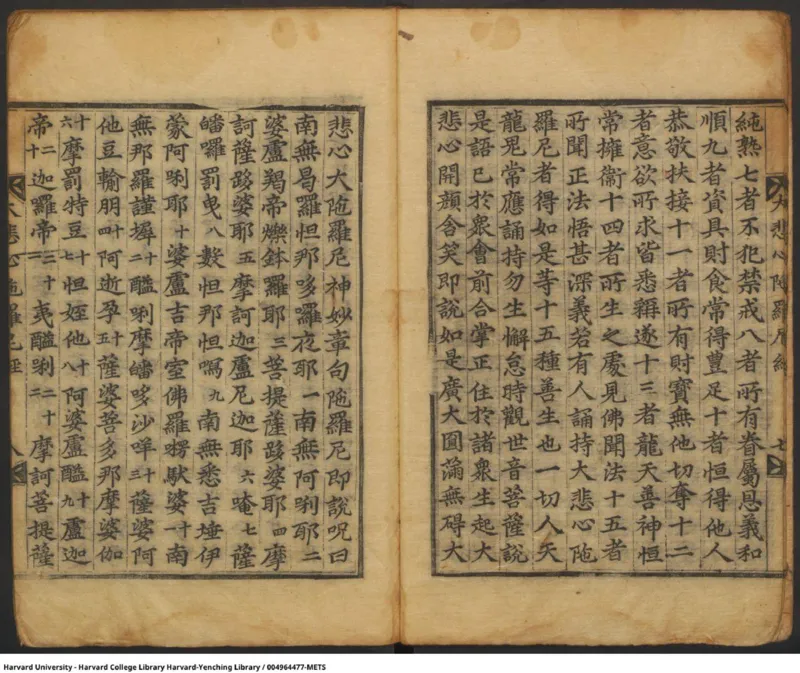 純熟七者不犯禁戒八者所有眷屬恩義和
順九者資具財食常得豊足十者恒得他人
恭敬扶接十一者所有財寶無他切奪十二
者意欲所求皆悉稱遂十三者龍天善神恒
常擁衞十四者所生之處見佛聞法十五者
所聞正法悟甚深義若有人誦持大悲心陁
羅尼者得如是等十五種善生也一切人天
龍鬼常應誦持勿生懈怠時觀世音菩薩說
是語已於衆會前合掌正住於諸衆生起大
悲心開顔含笑即說如是廣大圓滿無碍大
大悲心陁羅尼經 七
悲心大陁羅尼神妙章句陁羅尼即說呪曰
南無曷羅怛那哆羅夜耶一南無阿唎耶二
婆盧羯帝爍鉢羅耶三菩提薩跢婆耶四摩
訶薩跢婆耶五摩訶迦盧尼迦耶六唵七薩
皤囉罰曳八數怛那怛嗎九南無悉吉埵伊
蒙阿唎耶十婆盧吉帝室佛羅楞馱婆十一南
無那羅謹墀十二醯唎摩皤哆沙咩十三薩婆阿
他豆輸朋十四阿逝孕十五薩婆菩多那摩婆伽
十六摩罰特豆十七怛姪他十八阿婆盧醯十九盧迦
帝二十迦羅帝二十一夷醯唎二十二摩訶菩提薩
大悲心陁羅尼經 八
Harvard University - Harvard College Library Harvard-Yenching Library / 004964477-METS